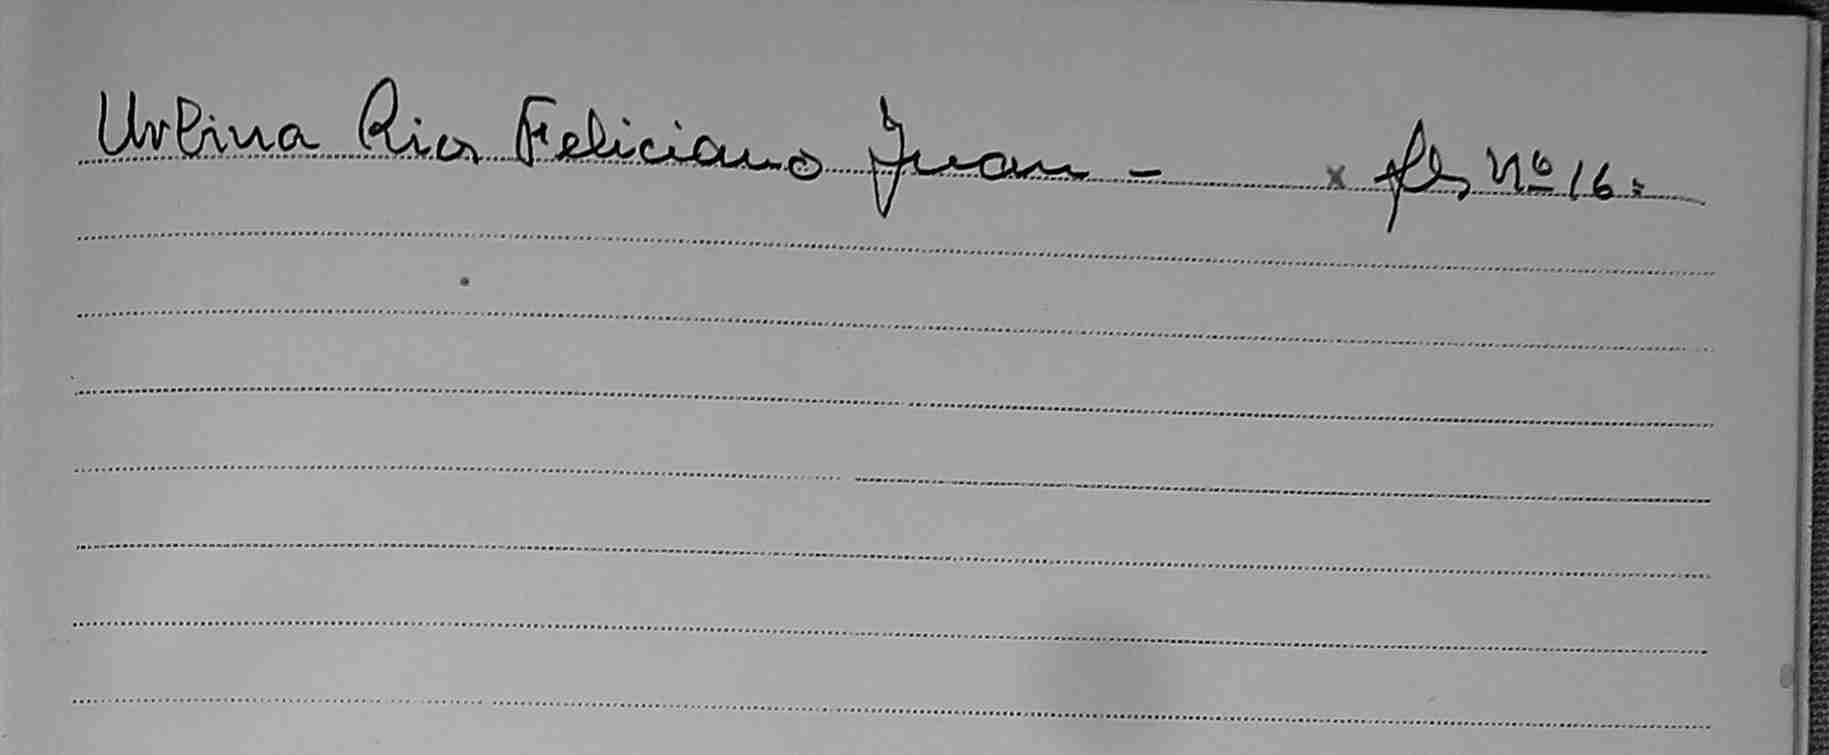 Urbina Rios Feliciano Juan - x fls Nº 16=